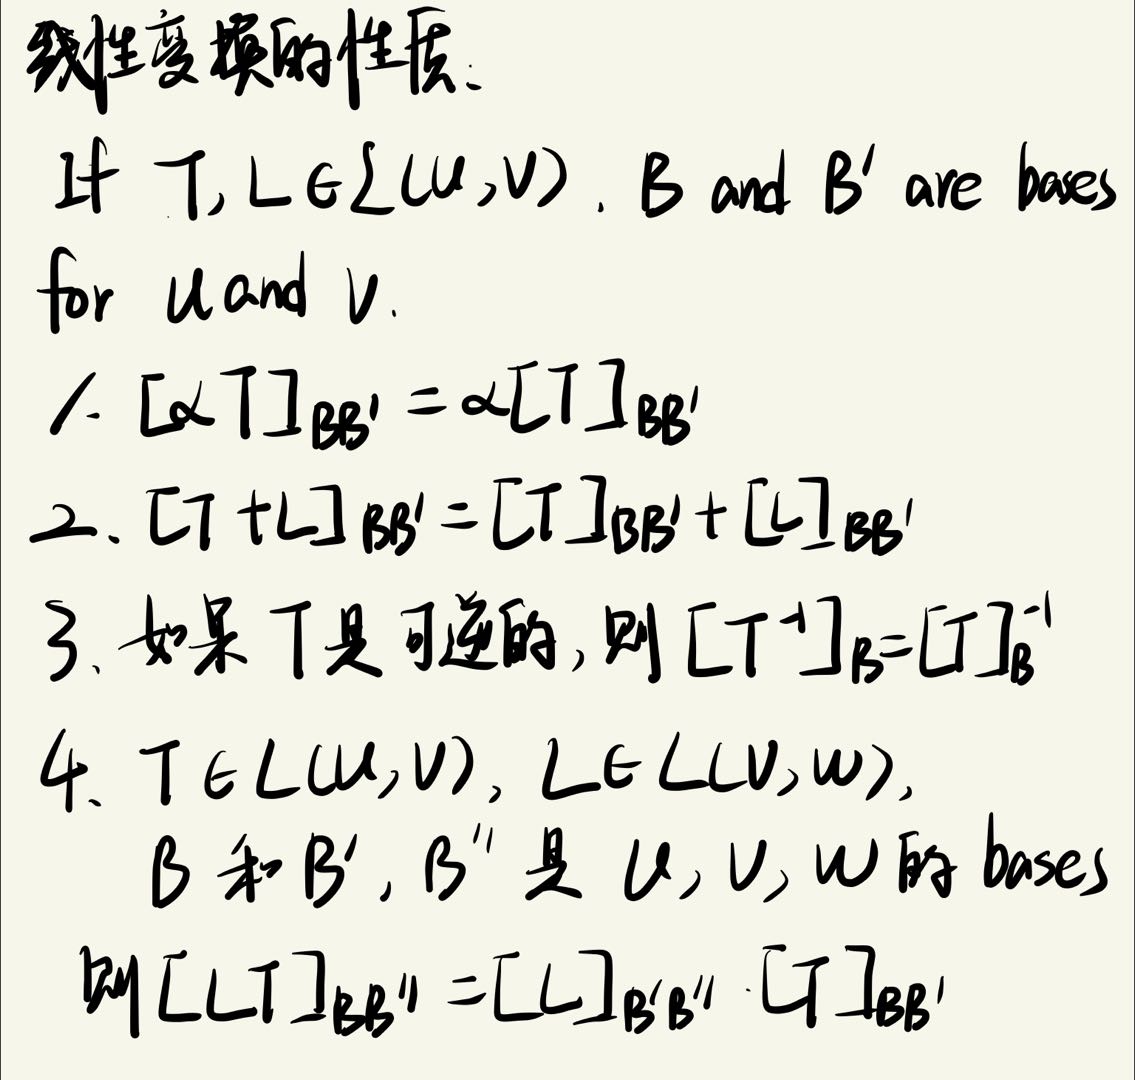 线性变换的性质:
If T, L ∈ L(U,V). B and B' are bases
for U and V.
1. [αT]BB' = α[T]BB'
2. [T+L]BB' = [T]BB' + [L]BB'
3. 如果T是可逆的,则[T⁻¹]B=[T]B⁻¹
4. T ∈ L(U,V), L ∈ L(V,W),
B和B', B''是 U, V, W的bases
则[LT]BB'' = [L]B'B'' · [T]BB'